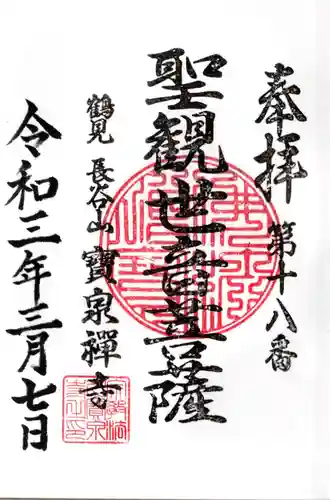 奉拝
第十八番
聖観世音菩薩
鶴見 長谷山 寶泉禪寺
令和三年三月七日